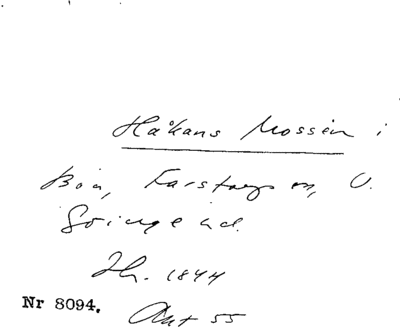 Håkans Mossen i
Böa, Farstorps sn, V.
Göinge hd.
Jh. 1844
Nr 8094. Ant 55